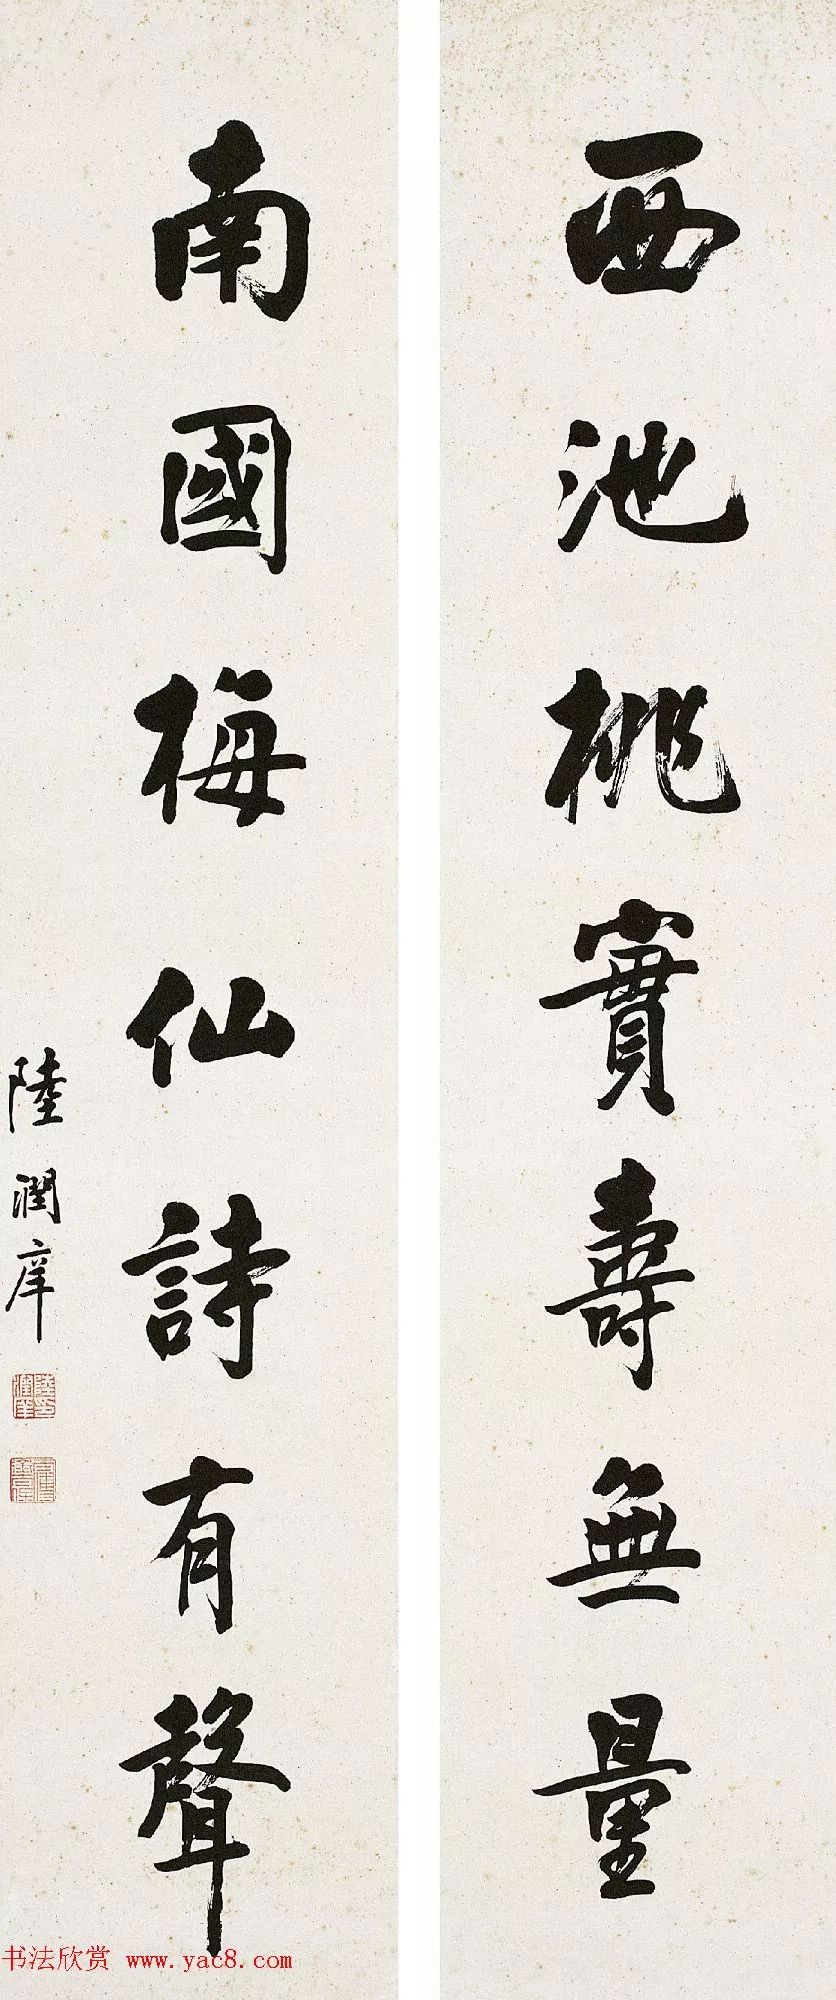 西池桃實壽無量
南國梅仙詩有聲
陸潤庠
书法欣赏 www.yac8.com